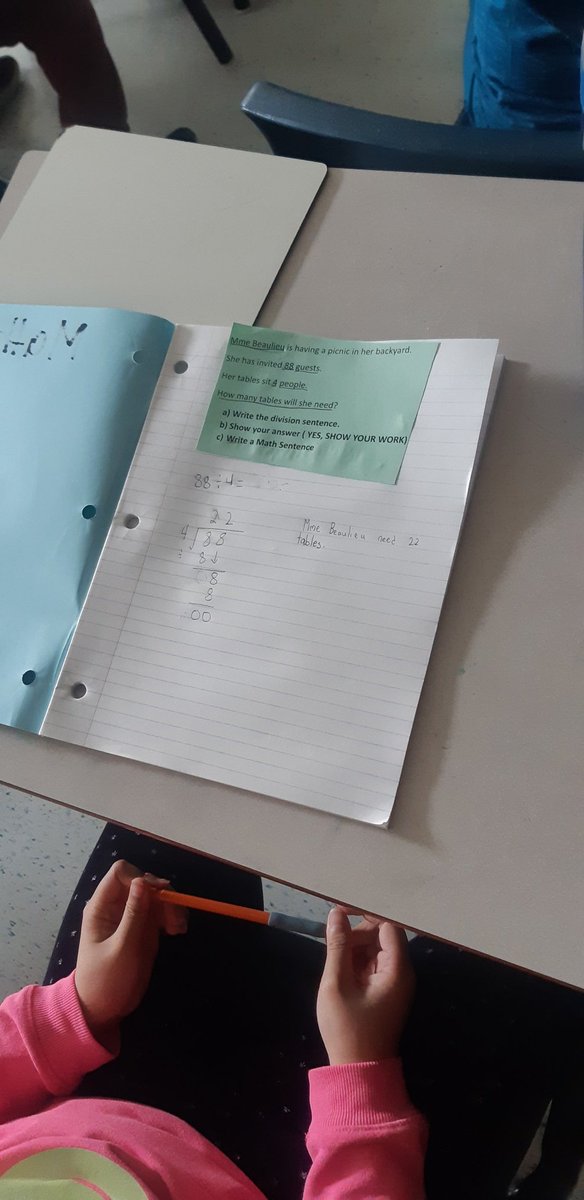 Mme Beaulieu is having a picnic in her backyard.
She has invited 88 guests.
Her tables sit 4 people.
How many tables will she need?
a) Write the division sentence.
b) Show your answer ( YES, SHOW YOUR WORK)
c) Write a Math Sentence
88÷4=
22
4 88
8↓
8
8
00
Mme Beaulieu need 22
tables.